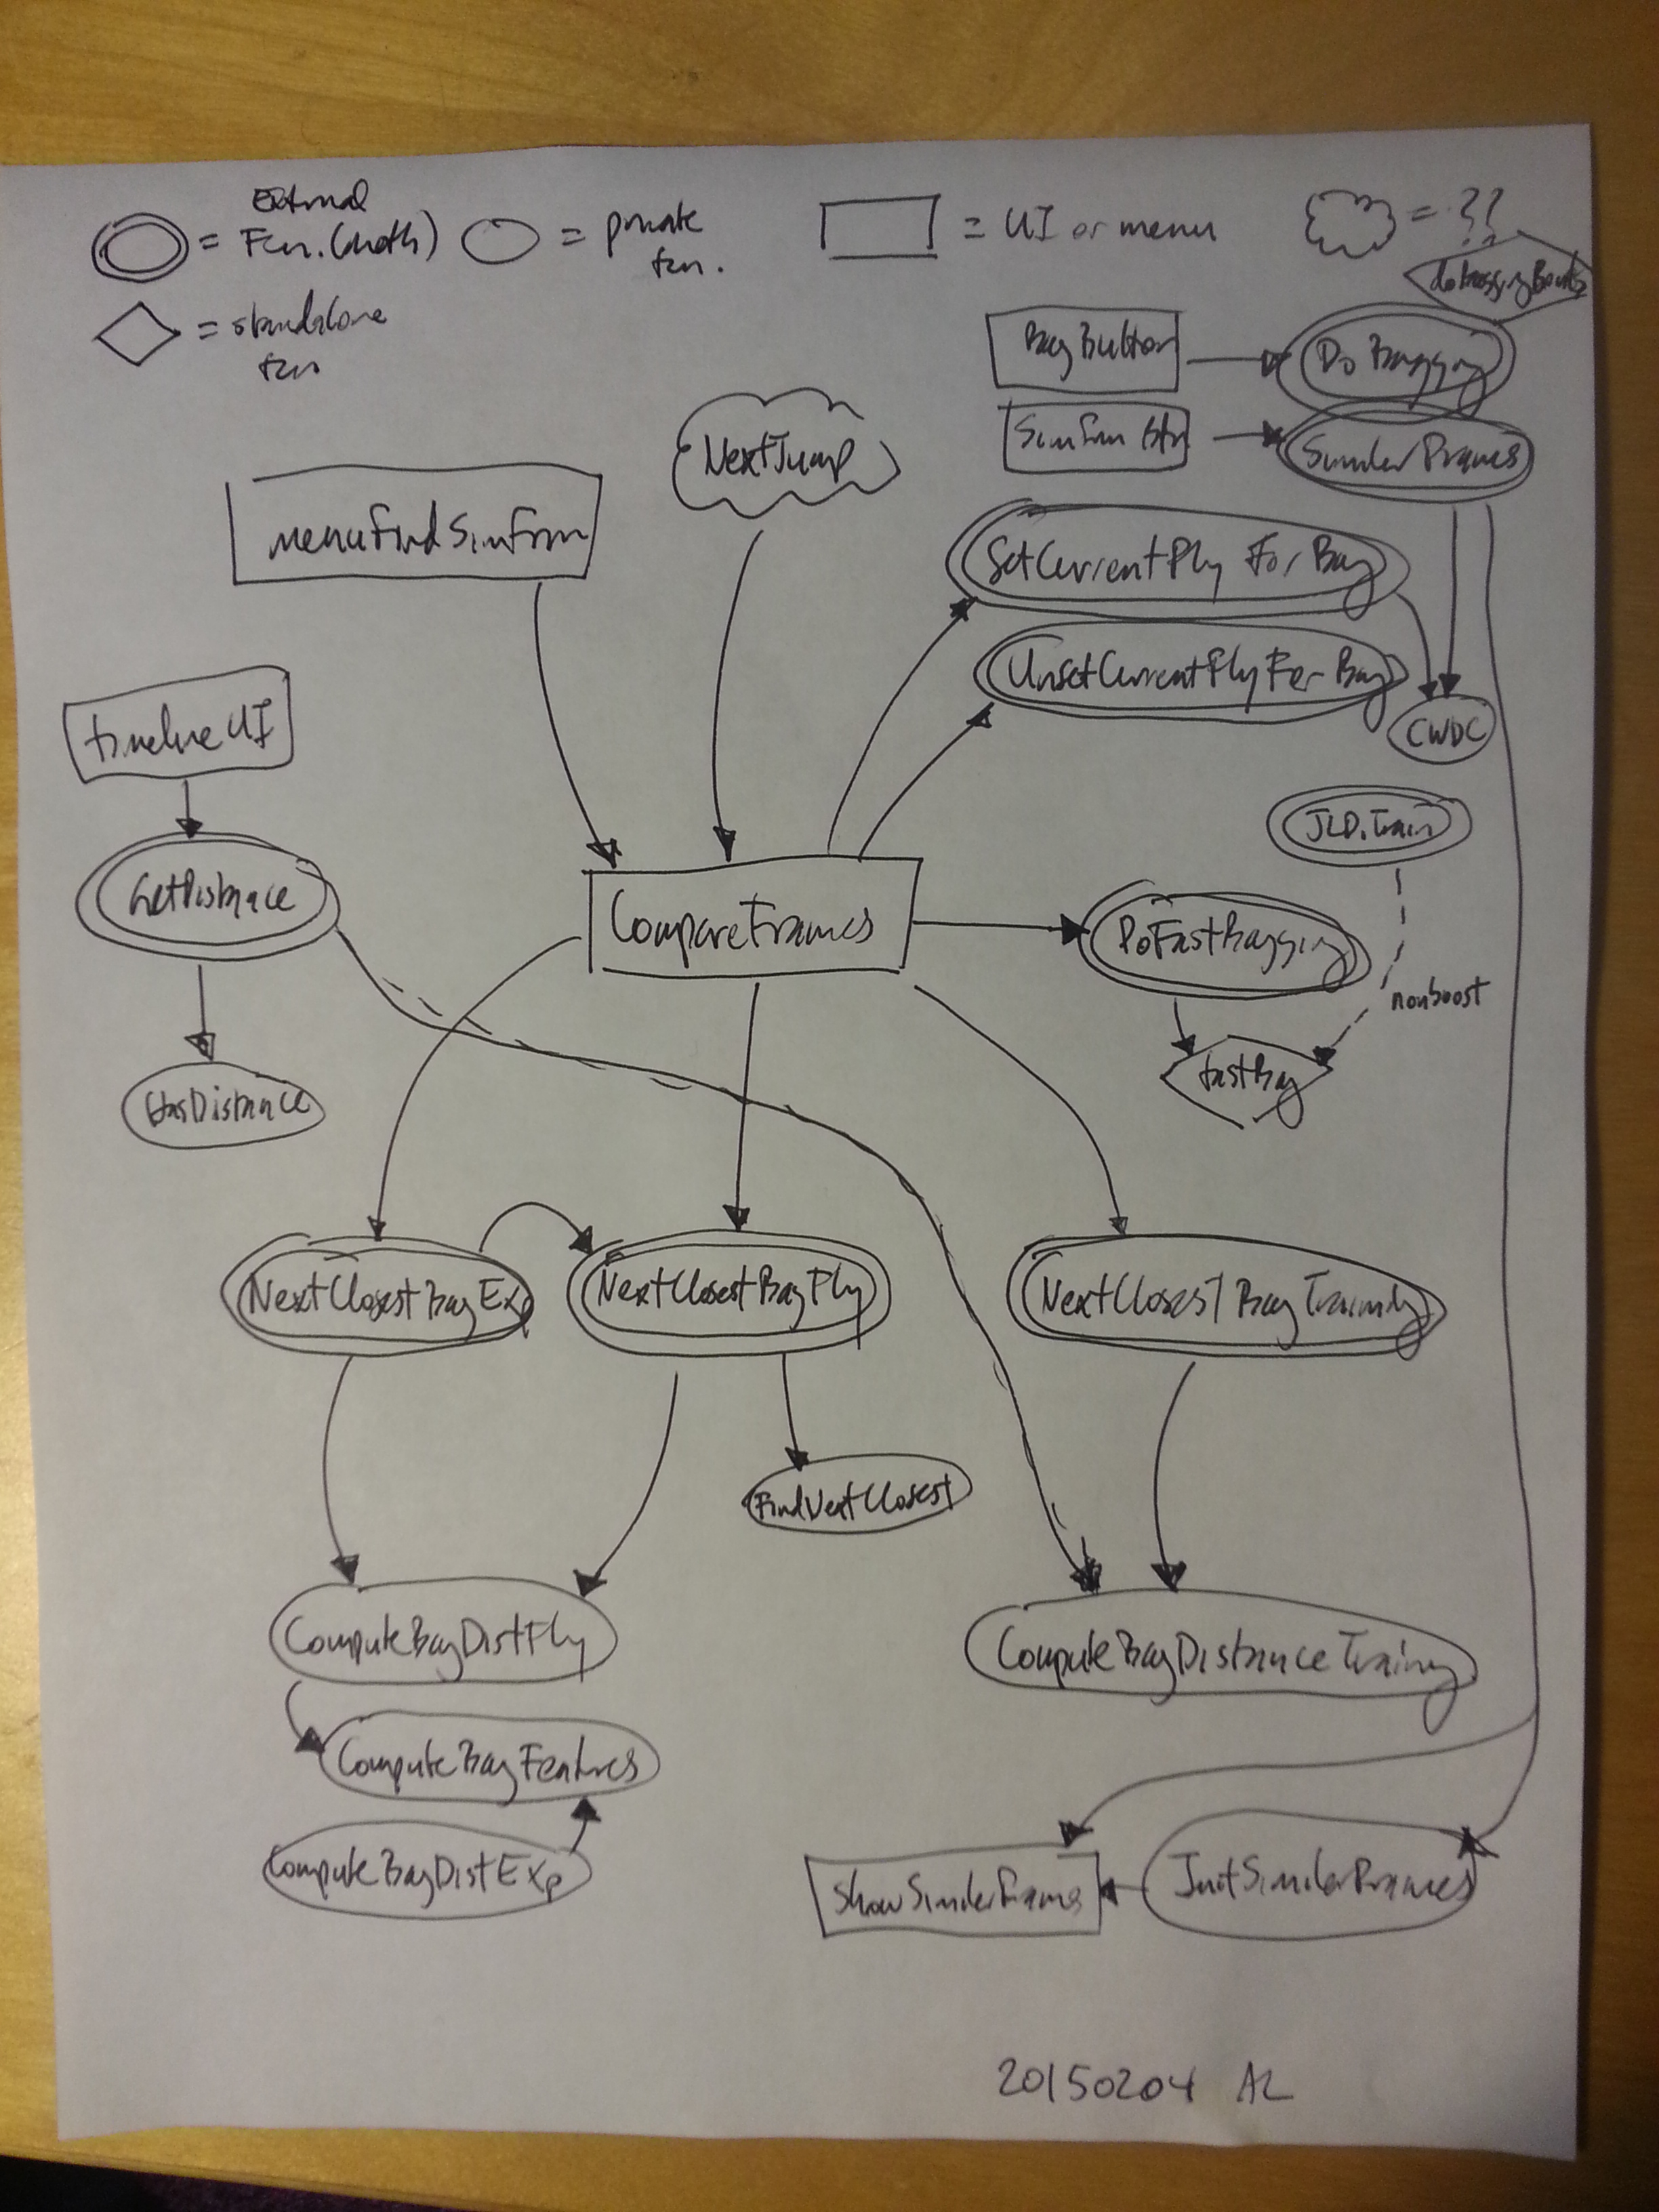 External
= Fcn. (meth)
= private
fcn.
= UI or menu
= ??
= standalone
fcn
BagButton
DoBagging
SimFrm Btn
SimilarFrames
NextJump
menuFindSimFrm
SetCurrentFly ForBag
UnsetCurrentFlyForBag
timelineUI
CWDC
JLD.Train
GetDistance
CompareFrames
DoFastBagging
nonboost
fastBag
HasDistance
NextClosestBagExp
NextClosestBagFly
NextClosestBagTraining
FindNextClosest
ComputeBagDistFly
ComputeBagDistanceTraining
ComputeBagFeatures
ComputeBagDistExp
ShowSimilarFrames
InitSimilarFrames
20150204 AL